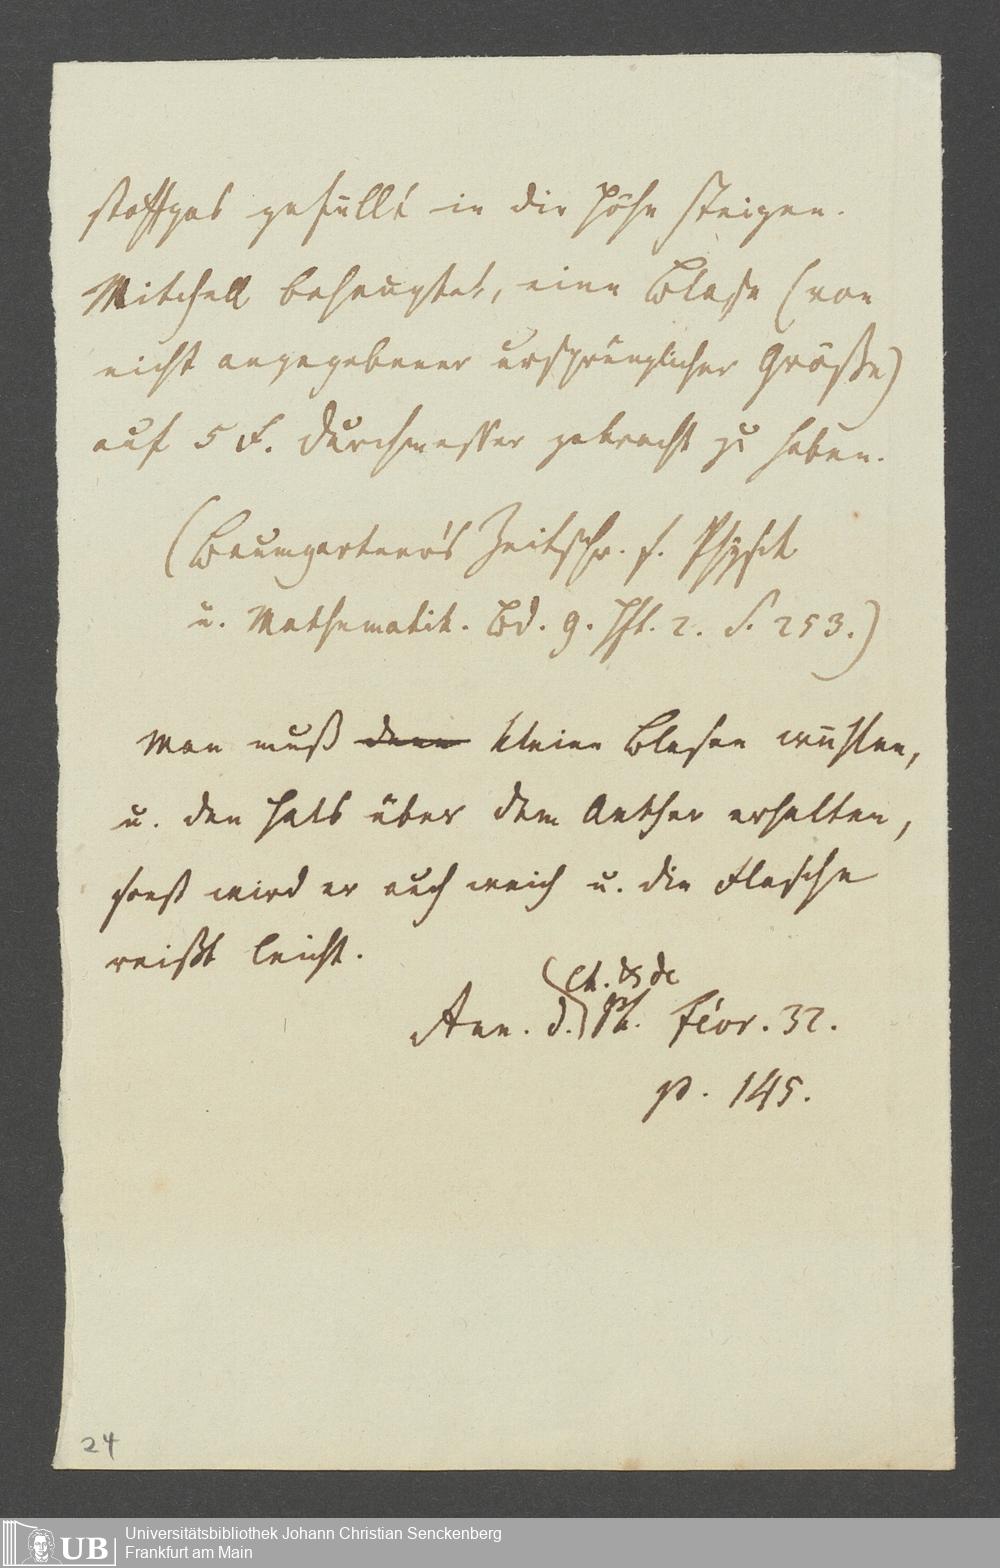 stoffgas gefüllt in die Höhe steigen.
Mitchell behauptet, eine Blase (von
nicht angegebener ursprünglicher Größe)
auf 5 F. Durchmesser gebracht zu haben.
(Baumgartner's Zeitschr. f. Physik
u. Mathematik. Bd. 9. Hft. 2. S. 253.)
Man muß kleine Blasen wählen,
u. den Hals über dem Aether erhalten,
sonst wird er auch weich u. die Flasche
reißt leicht.
ch. & de
Ann. d. Ph. Févr. 32.
p. 145.
24
UB
Universitätsbibliothek Johann Christian Senckenberg
Frankfurt am Main